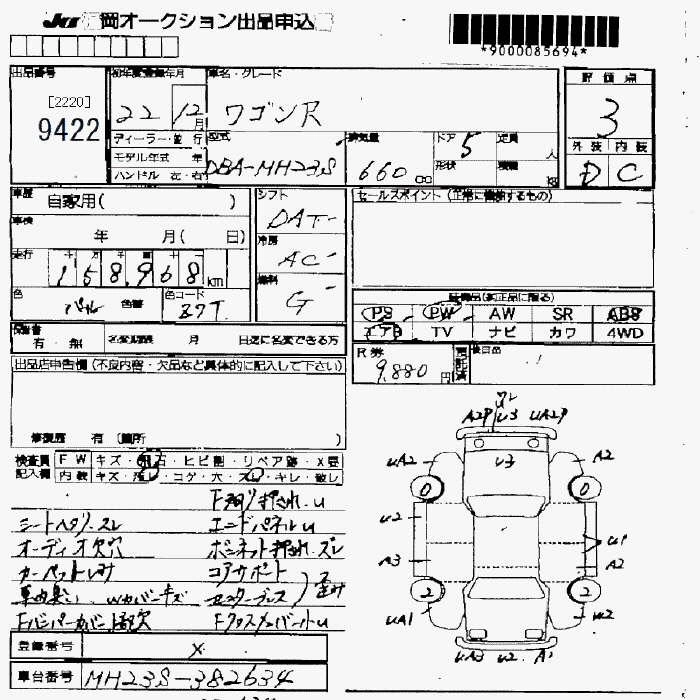 JU 岡オークション出品申込
*9000085694*
出品番号 初年度登録年月 車名・グレード 評価点
[2220]
9422
22 12月 ワゴンR 3
ディーラー・並行 型式 排気量 ドア 定員 外装 内装
モデル年式 年 DBA-MH23S 660cc 5 人 D C
ハンドル 左・右 形状 積載 kg
車歴 自家用( ) シフト セールスポイント(正常に機能するもの)
DAT
車検 年 月( 日) 冷房
AC
走行 十 万 千 燃料
158,968km G
色 パール 色替 色コード Z7T
装備品(純正品に限る)
PS PW AW SR ABS
エアB TV ナビ カワ 4WD
保証書 有・無 名変期限 月 日迄に名変できる方
R券 9,880円 預託済 後日品
出品店申告欄(不良内容・欠品など具体的に記入して下さい)
修復歴 有(箇所 )
検査員記入欄 FW キズ・飛石・ヒビ割・リペア跡・X要
内装 キズ・汚レ・コゲ・穴・スレ・キレ・破レ
シートヘタリ・スレ エンドパネルU
オーディオ欠穴 ボンネット押されズレ
コアサポート
Wカバーキズ
FクロスメンバーU
A2P U3 UA2P
UA2 U3 A2
0 0
U2 U1
A3 A2
2 2
UA1 U2
UA3 U2 A1
登録番号 X
車台番号 MH23S-382634